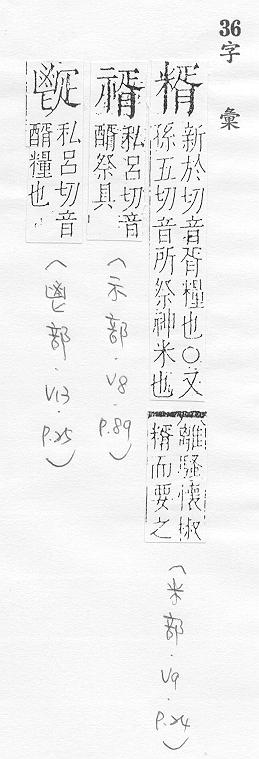 36
字 彙
糈
新於切音胥糧也○又
孫五切音所祭神米也
離騷懷椒
糈而要之
(米部.V9.P.24)
私呂切音
醑祭具
(示部.V8.P.89)
私呂切音
醑糧也
(鬯部.V13.P.25)